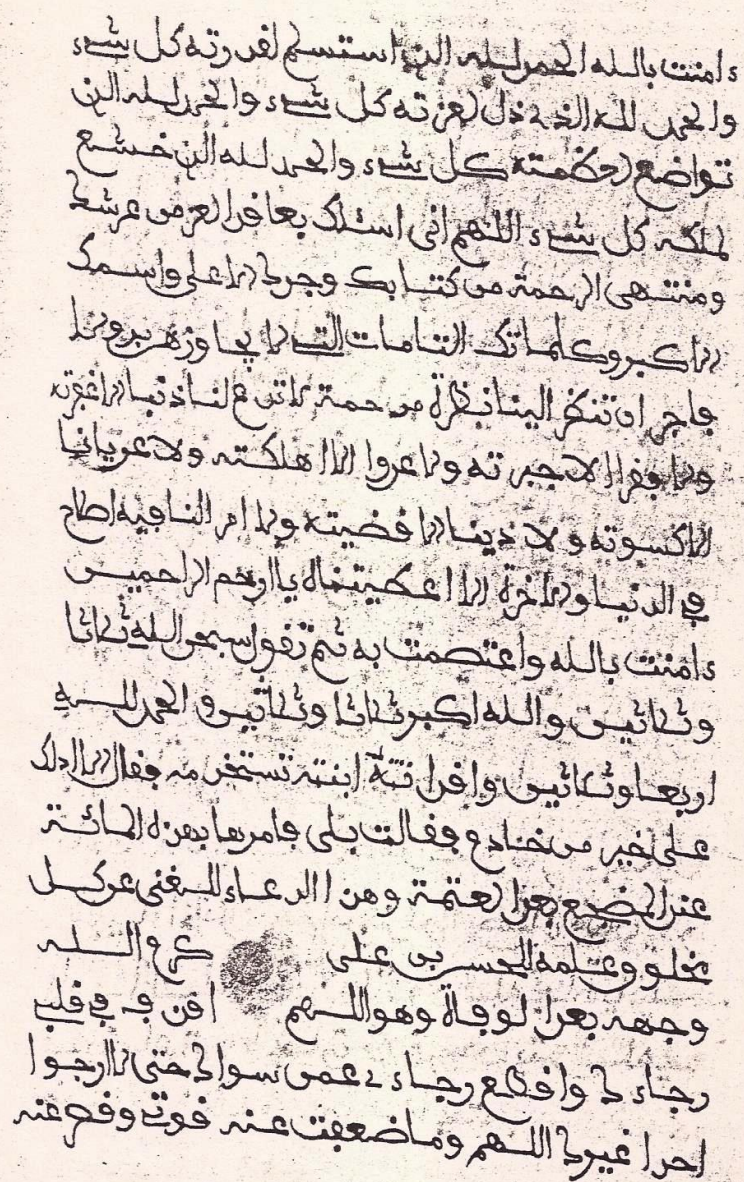 ءامنت بالله الحمد لله الذي استسلم لقدرته كل شيء
والحمد لله الذي ذل لعزته كل شيء والحمد لله الذي
تواضع لعظمته كل شيء والحمد لله الذي خشع
لملكه كل شيء اللهم اني اسئلك بمعاقد العز من عرشك
ومنتهى الرحمة من كتابك وجدك الاعلى واسمك
الاكبر وكلماتك التامات التي لا يجاوزهن بر ولا
فاجر ان تنظر الينا نظرة مرحمة لا تدع لنا ذنبا الا غفرته
ولا فقرا الا جبرته ولا عدوا الا اهلكته ولا عريانا
الا كسوته ولا دينا الا قضيته ولا امر لنا فيه اصلاح
في الدنيا والاخرة الا اعطيتناه يا ارحم الراحمين
ءامنت بالله واعتصمت به ثم تقول سبحن الله ثلاثا
وثلاثين والله اكبر ثلاثا وثلاثين والحمد لله
اربعا وثلاثين وافرا تته ابنته تستخدمه فقال الا ادلك
على خير من خادم فقالت بلى فامرها بهذه المائة
عند المضجع بعد العتمة وهذا الدعاء للغنى عن كل
مخلوق وعلمه الحسن بن علي كرم الله
وجهه بعد الوفاة وهو اللهم اقذف في قلبي
رجاءك واقطع رجاءي عمن سواك حتى لا ارجوا
احدا غيرك اللهم وما ضعفت عنه قوتي وقصر عنه